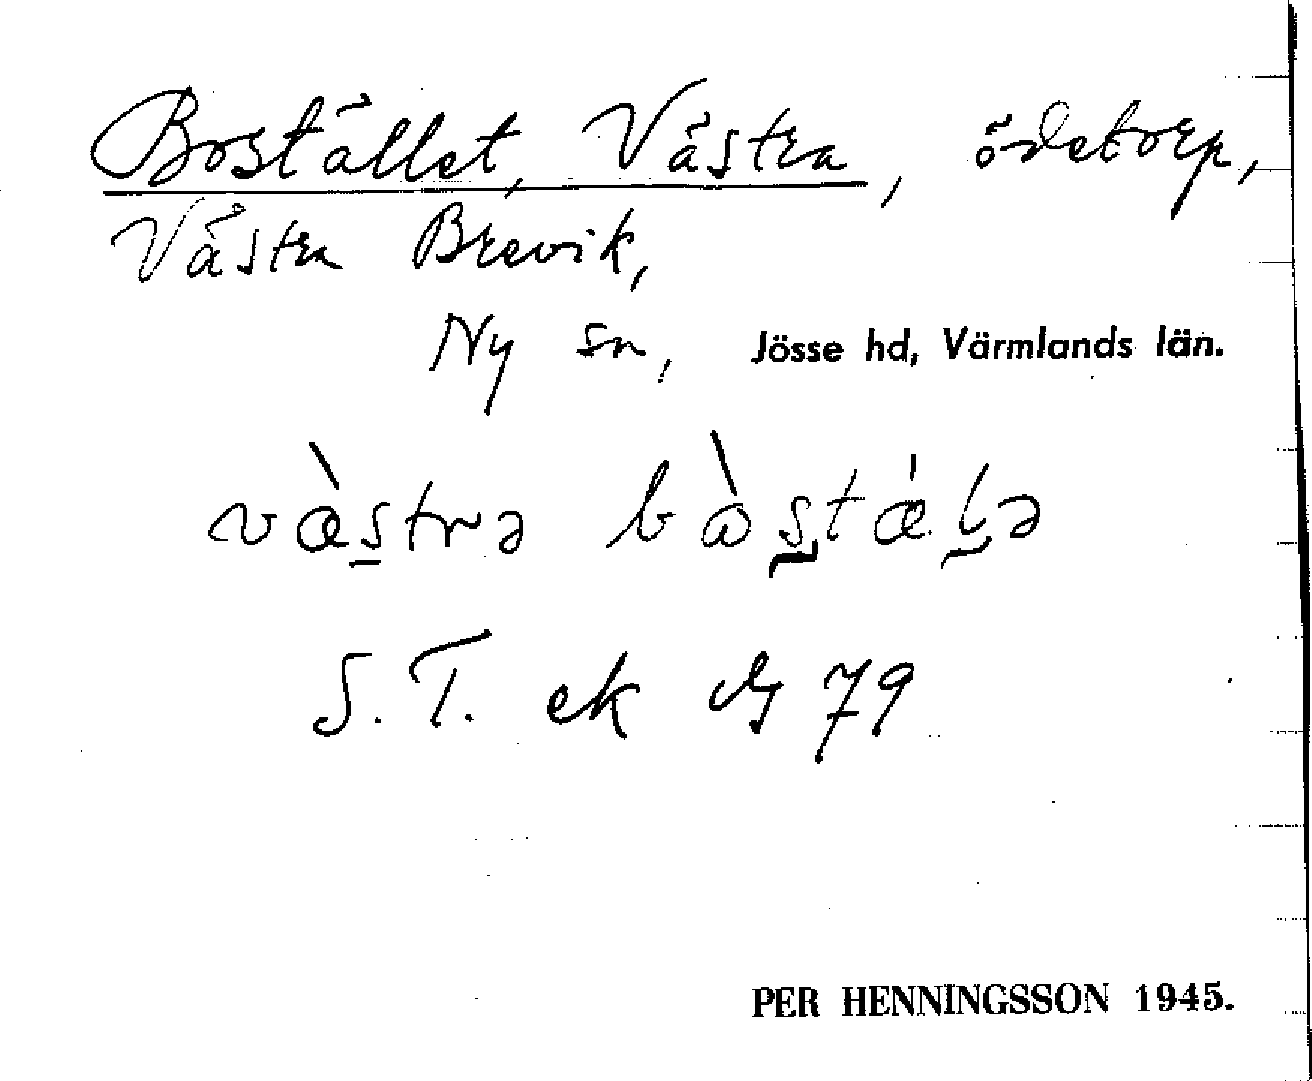 Bostället, Västra, ödetorp,
Västra Brevik,
Ny sn, Jösse hd, Värmlands län.
væ̀s̲trə bɷ̀s̲tæ̍l̲ə
S. T. ek 79
PER HENNINGSSON 1945.